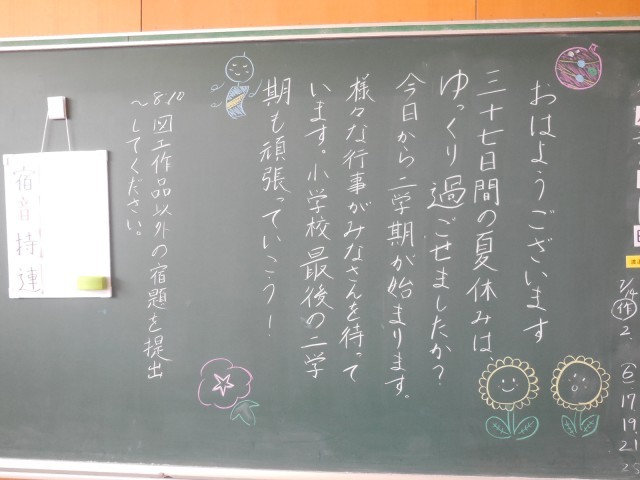 おはようございます
三十七日間の夏休みは、
ゆっくり過ごせましたか?
今日から二学期が始まります。
様々な行事がみなさんを待って
います。小学校最後の二学
期も頑張っていこう!
8:10
〜図工作品以外の宿題を提出
してください。
宿
音
持
連
7/4
作
2.
17
19.
21